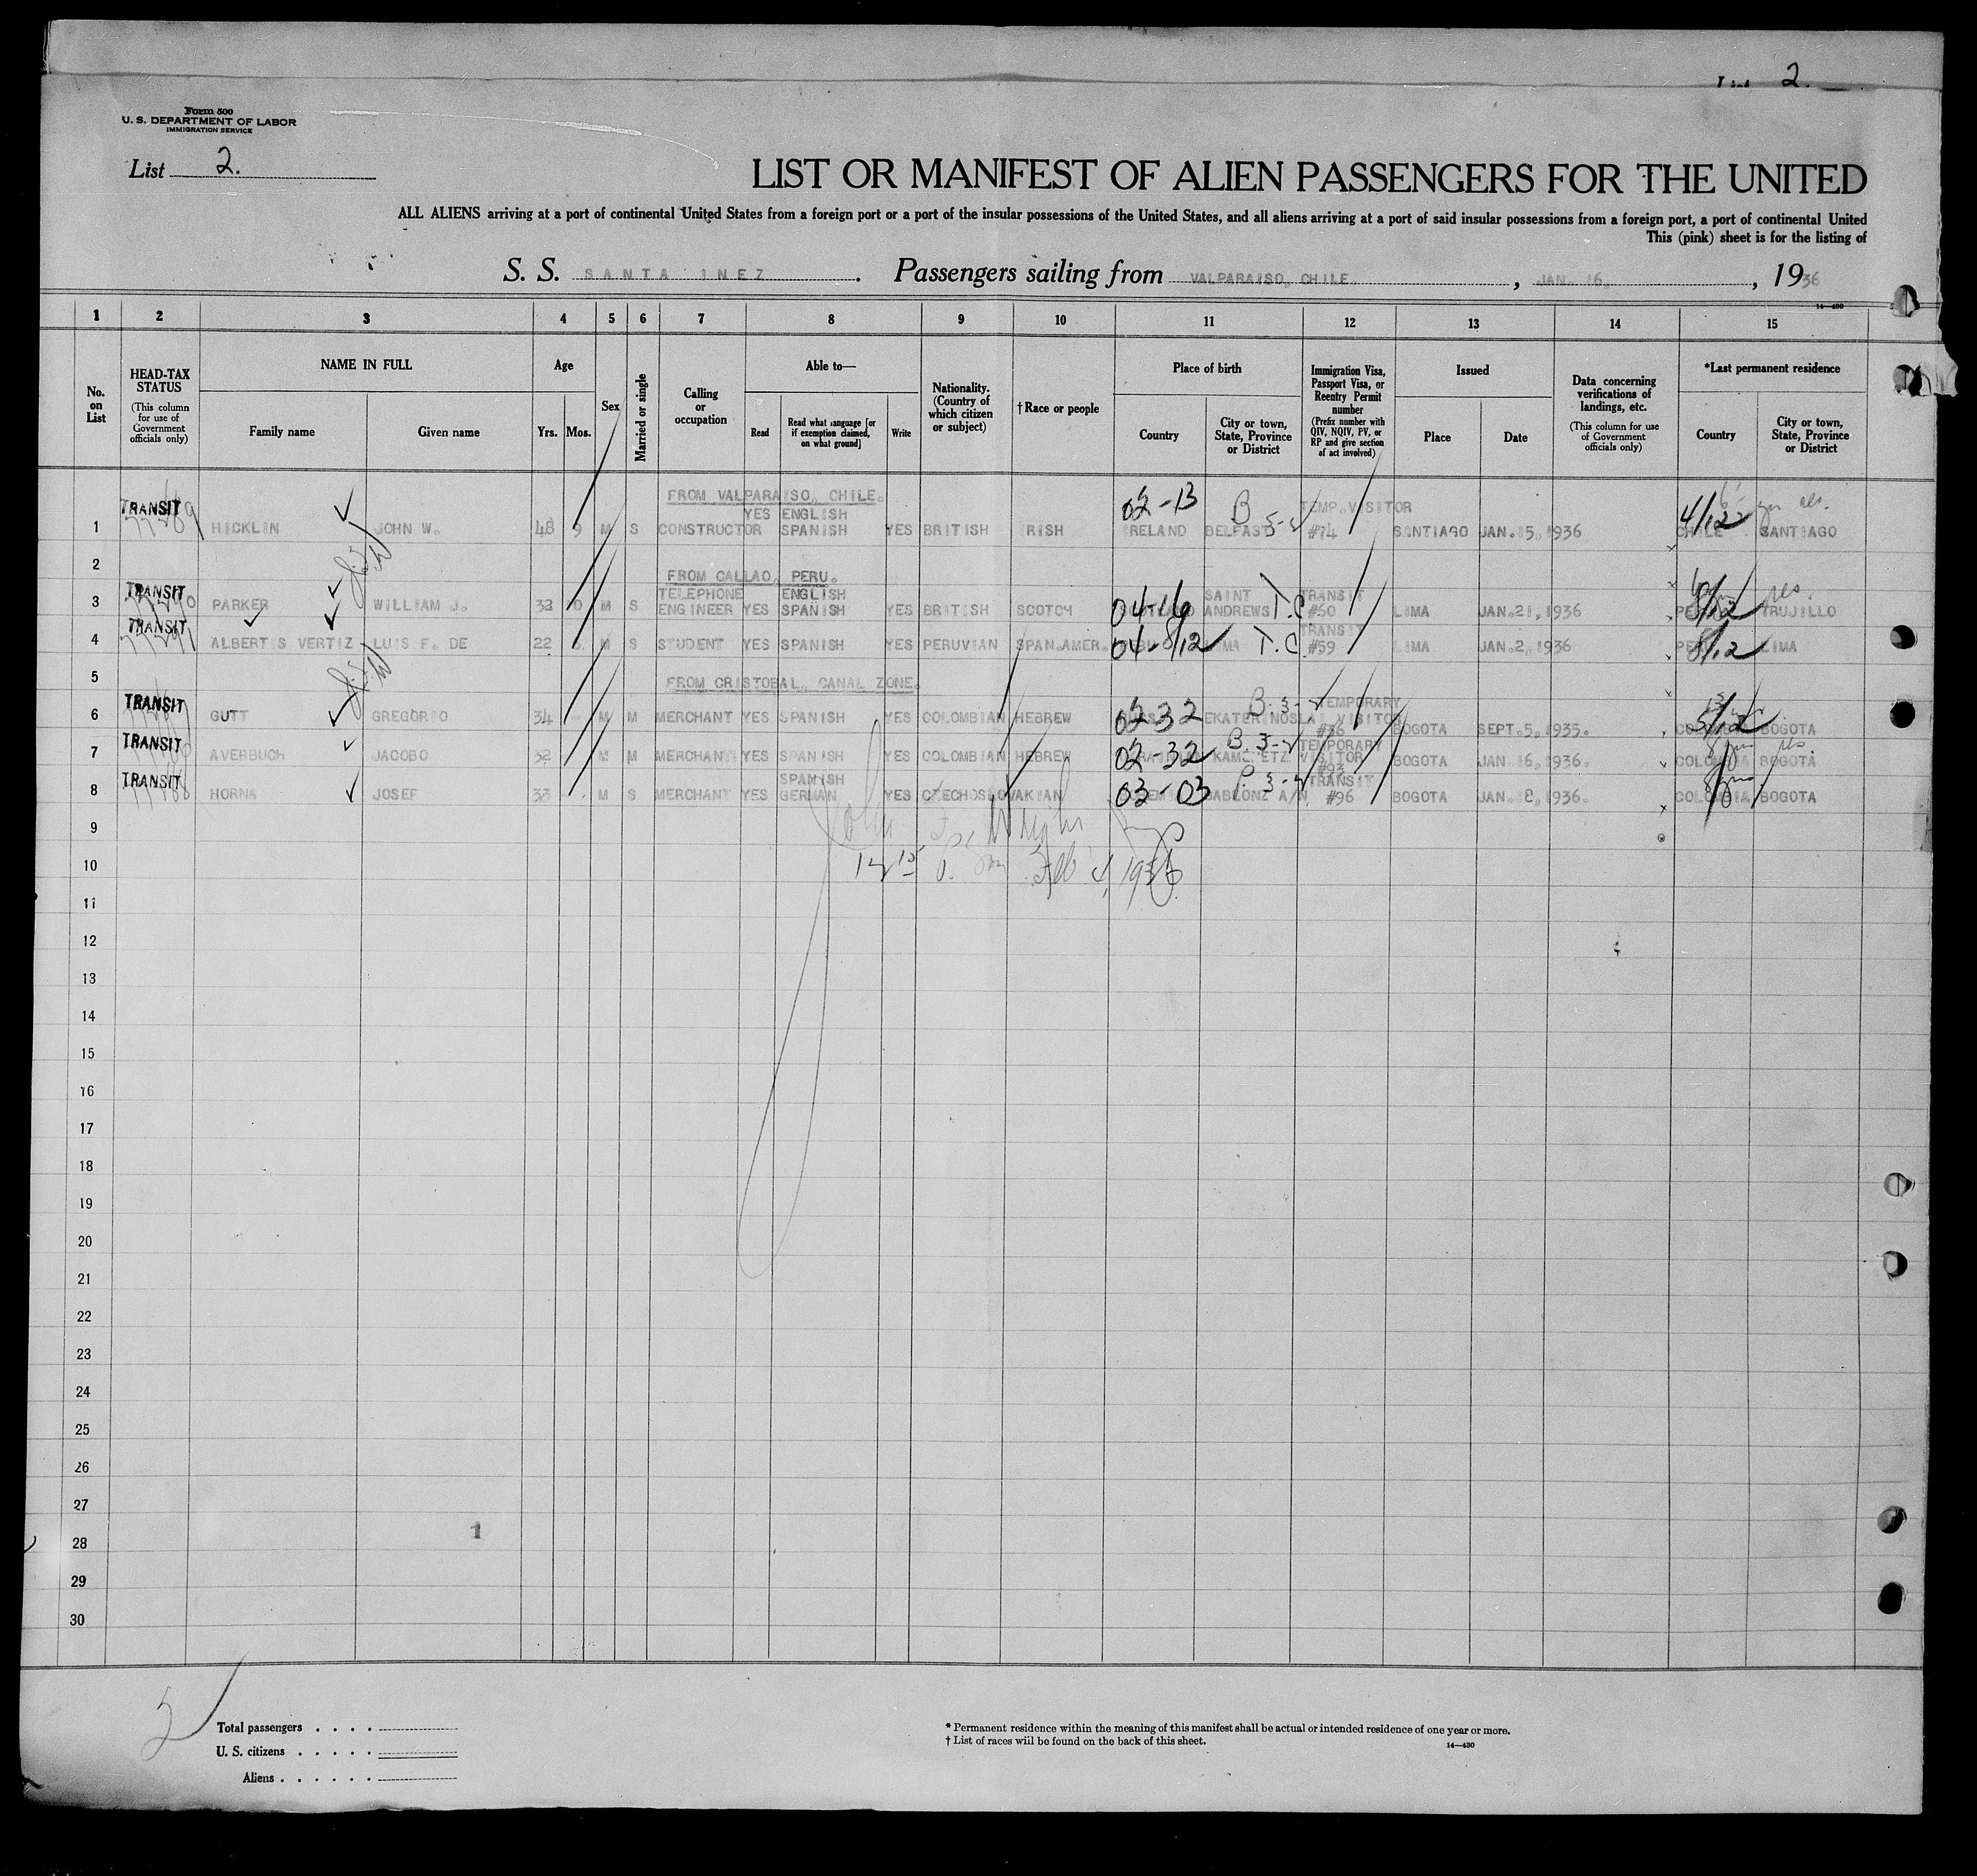 List 2.
Form 500
U. S. DEPARTMENT OF LABOR
IMMIGRATION SERVICE
List 2.
LIST OR MANIFEST OF ALIEN PASSENGERS FOR THE UNITED
ALL ALIENS arriving at a port of continental United States from a foreign port or a port of the insular possessions of the United States, and all aliens arriving at a port of said insular possessions from a foreign port, a port of continental United
This (pink) sheet is for the listing of
S. S. SANTA INEZ. Passengers sailing from VALPARAISO, CHILE., JAN. 16., 1936
14—430
1 2 3 4 5 6 7 8 9 10 11 12 13 14 15
No. on List
HEAD-TAX STATUS (This column for use of Government officials only)
NAME IN FULL Family name Given name
Age Yrs. Mos.
Sex
Married or single
Calling or occupation
Able to— Read Read what language [or if exemption claimed, on what ground] Write
Nationality. (Country of which citizen or subject)
†Race or people
Place of birth Country City or town, State, Province or District
Immigration Visa, Passport Visa, or Reentry Permit number (Prefix number with QIV, NQIV, PV, or RP and give section of act involved)
Issued Place Date
Data concerning verifications of landings, etc. (This column for use of Government officials only)
*Last permanent residence Country City or town, State, Province or District
FROM VALPARAISO, CHILE.
TRANSIT YES ENGLISH 02-13 B 3-2 TEMP.VISITOR 4/12
1 HICKLIN JOHN W. 48 9 M S CONSTRUCTOR SPANISH YES BRITISH IRISH IRELAND BELFAST #74 SANTIAGO JAN. 15, 1936 CHILE SANTIAGO
2
FROM CALLAO, PERU.
TRANSIT TELEPHONE ENGLISH SAINT TRANSIT
3 PARKER WILLIAM J. 32 0 M S ENGINEER YES SPANISH YES BRITISH SCOTCH 04-16 ANDREWS T.C #60 LIMA JAN.21,1936 8/12 TRUJILLO
TRANSIT TRANSIT
4 ALBERTIS VERTIZ LUIS F. DE 22 M S STUDENT YES SPANISH YES PERUVIAN SPAN.AMER. 04-8/12 LIMA T.C #59 LIMA JAN.2,1936 8/12 LIMA
5 FROM CRISTOBAL, CANAL ZONE.
TRANSIT B.3-2 TEMPORARY
6 GUTT GREGORIO 34 M M MERCHANT YES SPANISH YES COLOMBIAN HEBREW 02-32 EKATERINOSLA VISITOR #36 BOGOTA SEPT.5,1935. 5/12 BOGOTA
TRANSIT B.3-2 TEMPORARY
7 AVERBUCH JACOBO 32 M M MERCHANT YES SPANISH YES COLOMBIAN HEBREW 02-32 KAMENETZ VISITOR #93 BOGOTA JAN.16,1936. COLOMBIA BOGOTA
TRANSIT SPANISH TRANSIT
8 HORNA JOSEF 33 M S MERCHANT YES GERMAN YES CZECHOSLOVAKIAN 03-03 GABLONZ A/N #96 BOGOTA JAN. 8, 1936. COLOMBIA BOGOTA
9
10 Feb 4, 1936
11
12
13
14
15
16
17
18
19
20
21
22
23
24
25
26
27
28
29
30
Total passengers . . . .
U. S. citizens . . . . .
Aliens . . . . . .
* Permanent residence within the meaning of this manifest shall be actual or intended residence of one year or more.
† List of races will be found on the back of this sheet.
14—430